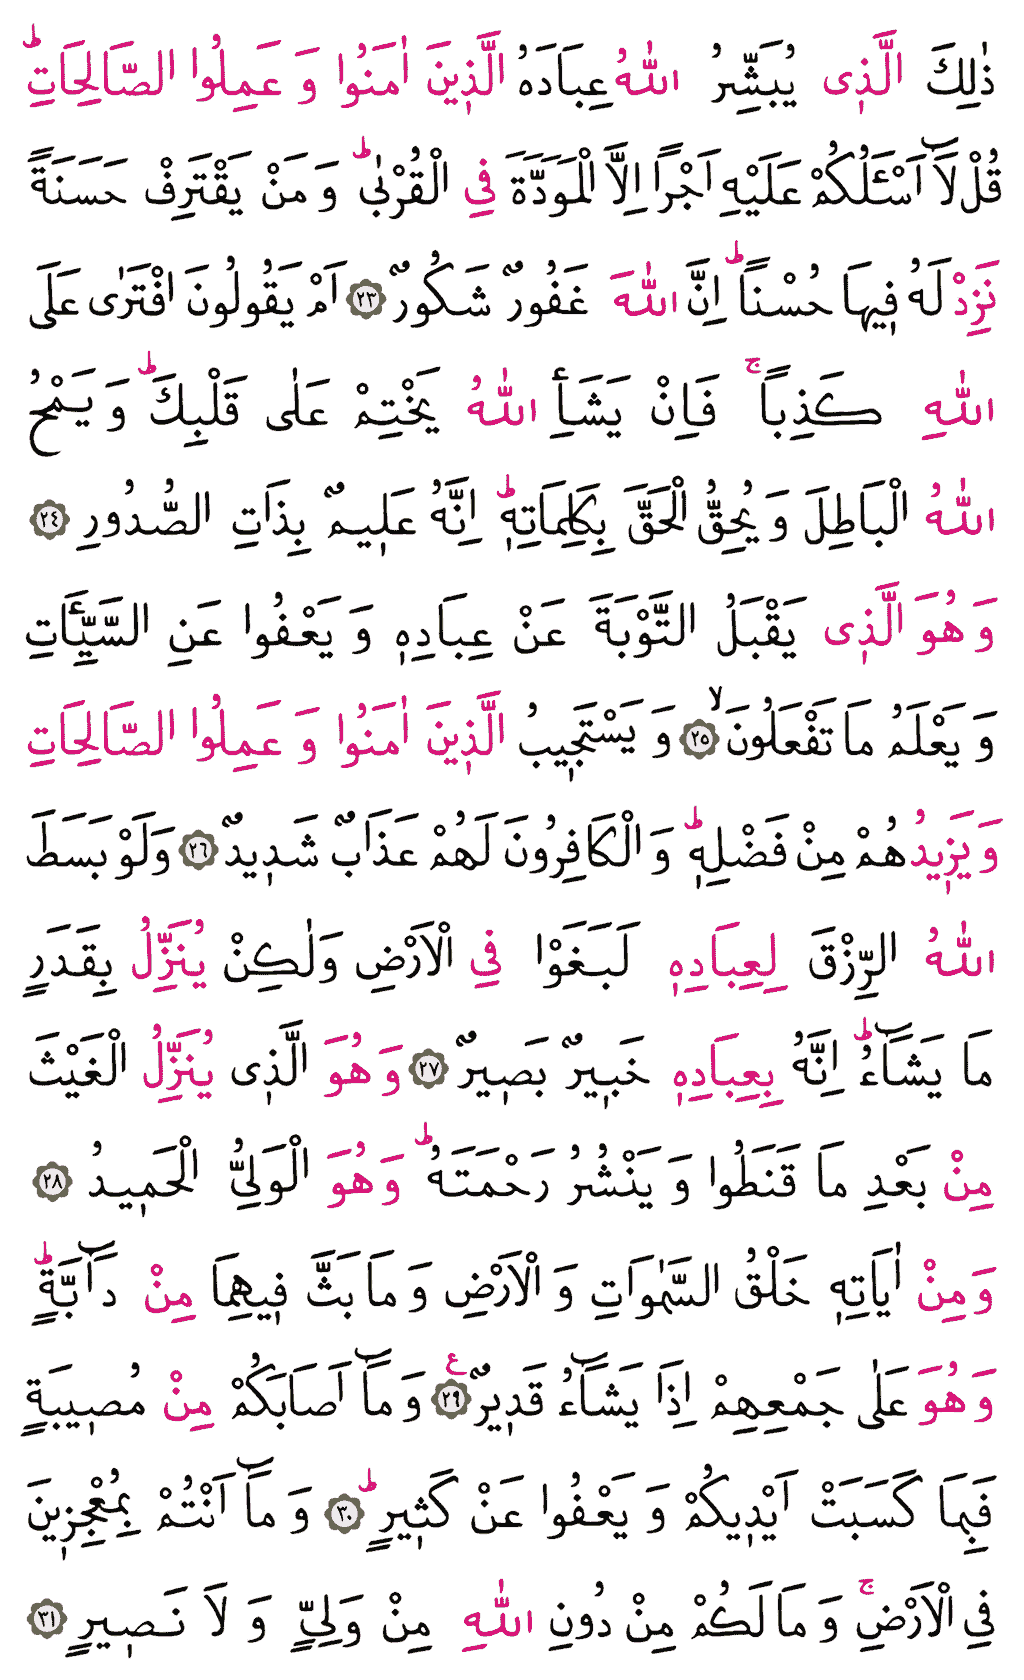 ذٰلِكَ الَّذٖى يُبَشِّرُ اللّٰهُ عِبَادَهُ الَّذٖينَ اٰمَنُوا وَ عَمِلُوا الصَّالِحَاتِؕ
قُلْ لَٓا اَسْـَٔلُكُمْ عَلَيْهِ اَجْرًا اِلَّا الْمَوَدَّةَ فِي الْقُرْبٰىؕ وَ مَنْ يَقْتَرِفْ حَسَنَةً
نَزِدْ لَهُ فٖيهَا حُسْنًاؕ اِنَّ اللّٰهَ غَفُورٌ شَكُورٌ ﴿٢٣﴾ اَمْ يَقُولُونَ افْتَرٰى عَلَى
اللّٰهِ كَذِبًاۚ فَاِنْ يَشَأِ اللّٰهُ يَخْتِمْ عَلٰى قَلْبِكَؕ وَ يَمْحُ
اللّٰهُ الْبَاطِلَ وَ يُحِقُّ الْحَقَّ بِكَلِمَاتِهٖؕ اِنَّهُ عَلٖيمٌ بِذَاتِ الصُّدُورِ ﴿٢٤﴾
وَ هُوَ الَّذٖى يَقْبَلُ التَّوْبَةَ عَنْ عِبَادِهٖ وَ يَعْفُوا عَنِ السَّيِّـَٔاتِ
وَ يَعْلَمُ مَا تَفْعَلُونَۙ ﴿٢٥﴾ وَ يَسْتَجٖيبُ الَّذٖينَ اٰمَنُوا وَ عَمِلُوا الصَّالِحَاتِ
وَ يَزٖيدُهُمْ مِنْ فَضْلِهٖؕ وَ الْكَافِرُونَ لَهُمْ عَذَابٌ شَدٖيدٌ ﴿٢٦﴾ وَلَوْ بَسَطَ
اللّٰهُ الرِّزْقَ لِعِبَادِهٖ لَبَغَوْا فِي الْاَرْضِ وَلٰكِنْ يُنَزِّلُ بِقَدَرٍ
مَا يَشَٓاءُؕ اِنَّهُ بِعِبَادِهٖ خَبٖيرٌ بَصٖيرٌ ﴿٢٧﴾ وَ هُوَ الَّذٖى يُنَزِّلُ الْغَيْثَ
مِنْ بَعْدِ مَا قَنَطُوا وَ يَنْشُرُ رَحْمَتَهُؕ وَ هُوَ الْوَلِيُّ الْحَمٖيدُ ﴿٢٨﴾
وَ مِنْ اٰيَاتِهٖ خَلْقُ السَّمٰوَاتِ وَ الْاَرْضِ وَ مَا بَثَّ فٖيهِمَا مِنْ دَٓابَّةٍؕ
وَ هُوَ عَلٰى جَمْعِهِمْ اِذَا يَشَٓاءُ قَدٖيرٌ ﴿٢٩﴾ع وَ مَٓا اَصَابَكُمْ مِنْ مُصٖيبَةٍ
فَبِمَا كَسَبَتْ اَيْدٖيكُمْ وَ يَعْفُوا عَنْ كَثٖيرٍؕ ﴿٣٠﴾ وَ مَٓا اَنْتُمْ بِمُعْجِزٖينَ
فِي الْاَرْضِۚ وَ مَا لَكُمْ مِنْ دُونِ اللّٰهِ مِنْ وَلِيٍّ وَ لَا نَصٖيرٍ ﴿٣١﴾